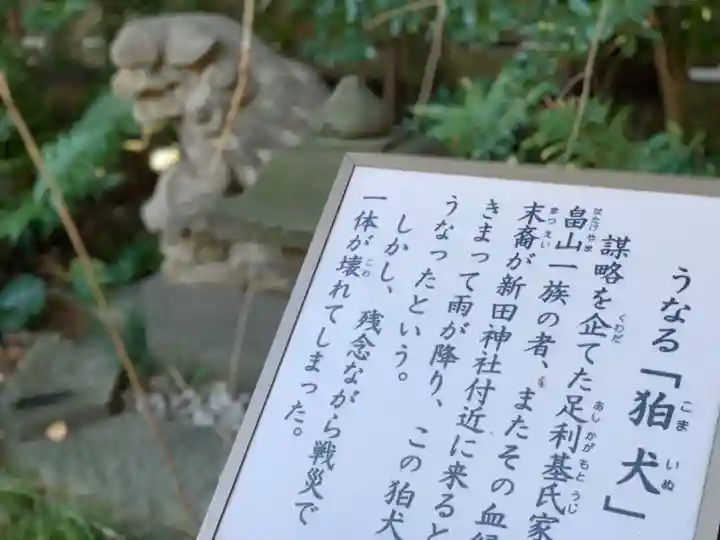 うなる「狛犬」
謀略を企てた足利基氏家
畠山一族の者、またその血
末裔が新田神社付近に来ると
きまって雨が降り、この狛犬
うなったという。
しかし、残念ながら戦災で
一体が壊れてしまった。